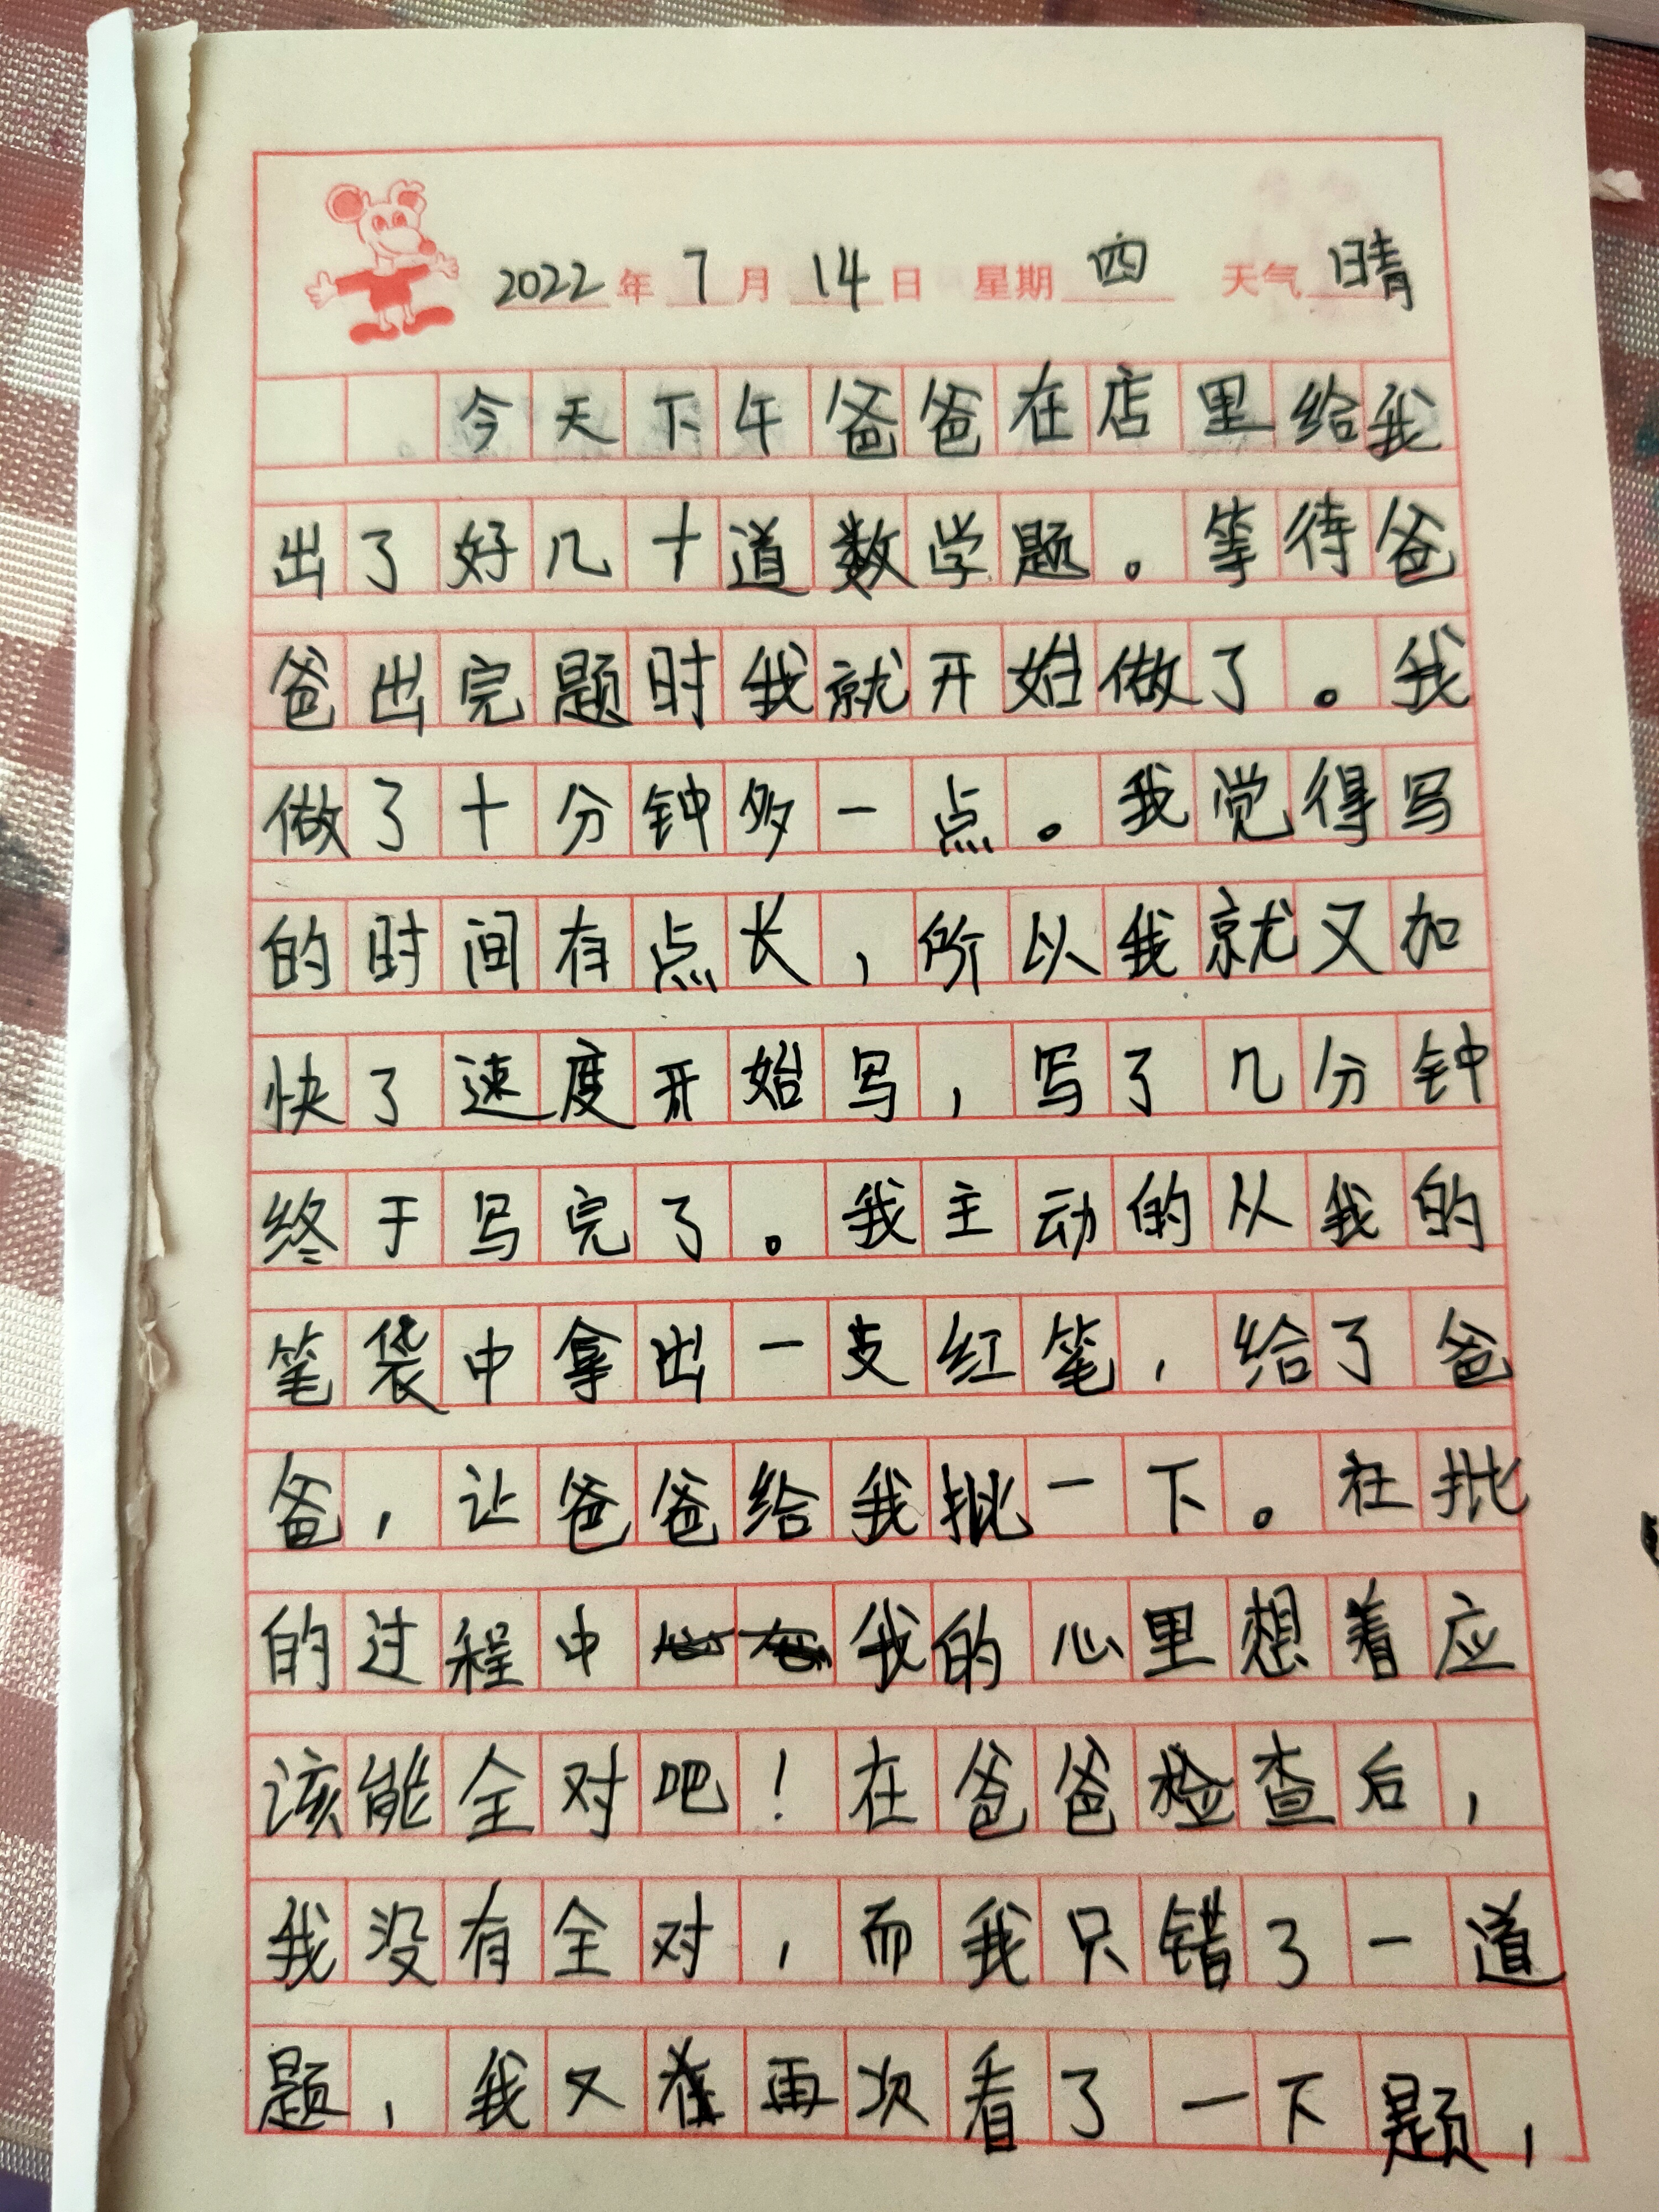 2022年7月14日 星期四 天气晴
今天下午爸爸在店里给我
出了好几十道数学题。等待爸
爸出完题时我就开始做了。我
做了十分钟多一点。我觉得写
的时间有点长，所以我就又加
快了速度开始写，写了几分钟
终于写完了。我主动的从我的
笔袋中拿出一支红笔，给了爸
爸，让爸爸给我批一下。在批
的过程中我的心里想着应
该能全对吧！在爸爸检查后，
我没有全对，而我只错了一道
题，我又再次看了一下题，